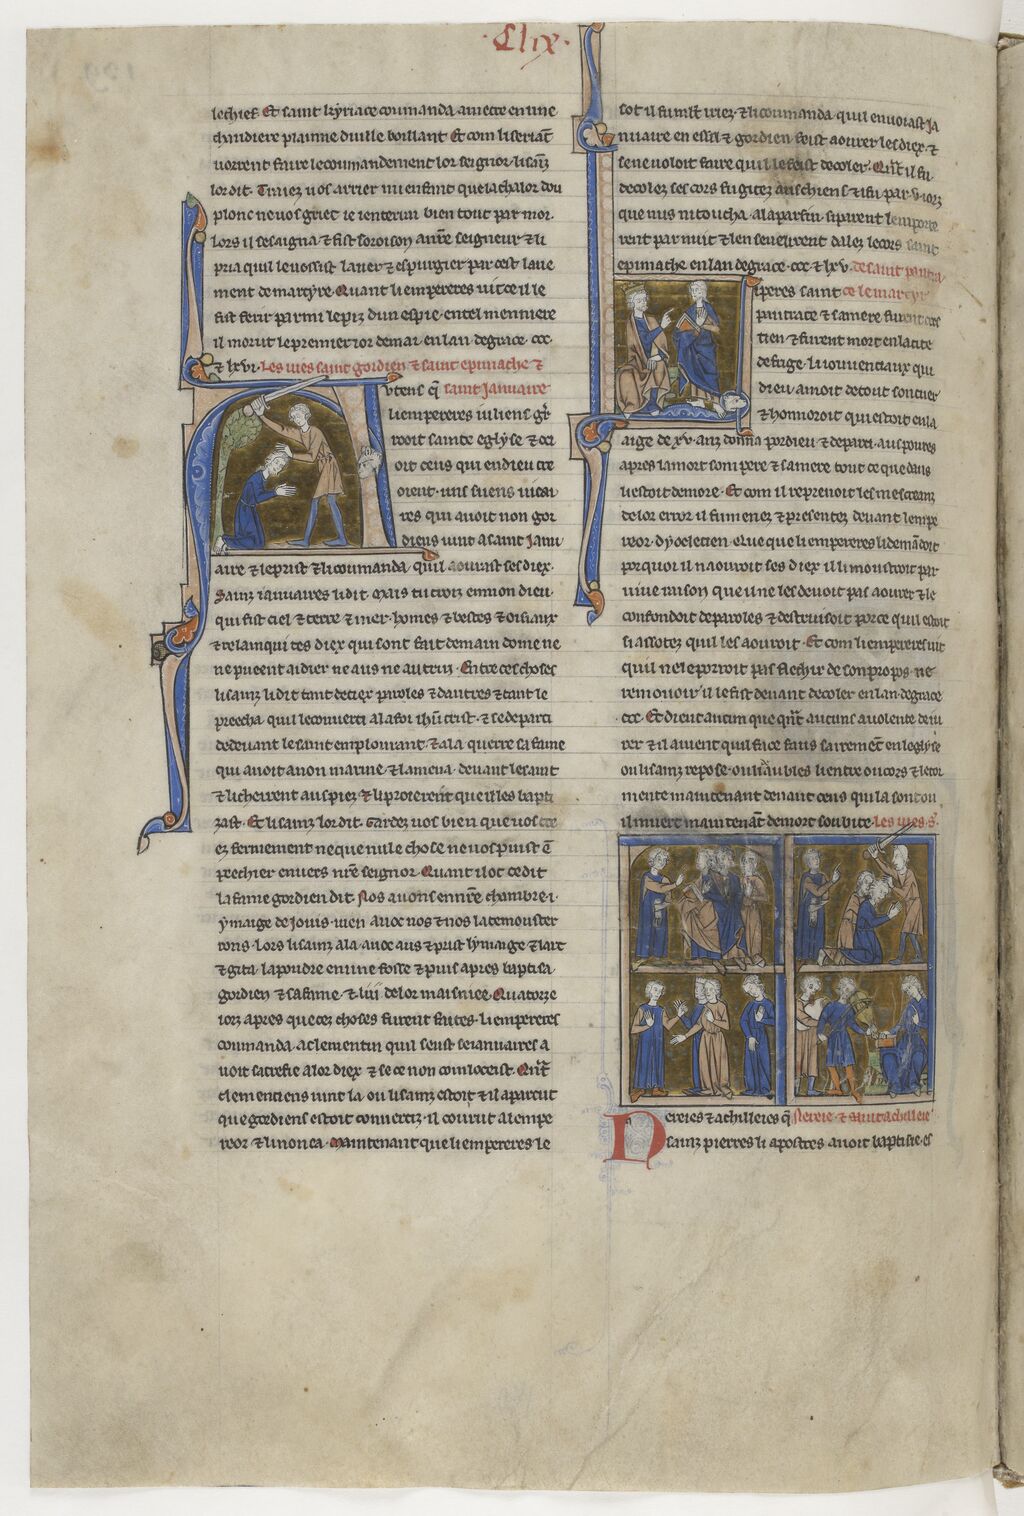 ·Clix·
le chief. Et saint kyriace coumanda a metre en une
chaudiere plainne duille boillant Et com li seriāt
vorrent faire le coumandement lor seignor. li sainz
lor dit. Traiez vos arrier mi enfant que la chalor dou
plonc ne vos griet ie i enterrai bien tout par moi.
lors il se saigna ⁊ fist soroison a nr̄e seigneur ⁊ li
pria quil le vossist laver ⁊ espurgier par cest lave
ment de martyre. Quant li empereres vit ce il le
fist ferir parmi le piz dun espie. en tel menniere
il morut le premier ior de mai. en lan de grace. ccc.
⁊ lxvi. Les vies saint gordien ⁊ saint epimache ⁊
utens q̄ saint Januaire
li empereres iuliens gr̄
voit sainte eglyse ⁊ oci
oit ceus qui en dieu cre
oient. uns suens vicai
res qui avoit non gor
diens vint a saint Janu
aire ⁊ le prist ⁊ li coumanda quil aourast ses diex.
Sainz ianuaires li dit. Mais tu croi en mon dieu.
qui fist ciel ⁊ terre ⁊ mer. homes ⁊ bestes ⁊ oisiaux
⁊ relainqui tes diex qui sont fait de main dome ne
ne pueent aidier ne aus ne autrui. Entre ces choses
li sainz li dit tant de tiex paroles ⁊ dautres ⁊ tant le
preecha quil le converti a la foi ihū crist. ⁊ se departi
de devant le saint emplourant. ⁊ ala querre sa fame
qui avoit a non marine ⁊ lamena. devant le saint
⁊ li cheirent aus piez ⁊ li proierent que il les bapti
zast. Et li sainz lor dit. Gardez vos bien que vos cre
ez fermement ne que nule chose ne vos puist ē
pechier envers nr̄e seignor. Quant il ot ce dit
la fame gordien dit Nos avons en nr̄e chambre. i.
ymaige de Jovis. vien avoc nos ⁊ nos la te mouster
rons. Lors li sainz ala. avoc aus ⁊ prist lymaige ⁊ lart
⁊ gita la poudre en une fosse ⁊ puis apres baptisa.
gordien ⁊ sa fame. ⁊ lūi de lor maisniee. Quatorze
iorz apres que cez choses furent faites. li empereres
coumanda. a clementin quil seust se ianuaires a
voit sacrefie a lor diex ⁊ se ce non com loceist. Qn̄t
clementiens vint la. ou li sainz estoit ⁊ il aparcut
que gordiens estoit convertiz. il courut a lempe
reor ⁊ li nonca. Maintenant que li empereres le
sot il fu mlt̄ iriez. ⁊ li coumanda quil envoiast Ja
nuaire en essil ⁊ gordien feist aourer les diex. ⁊
se ne voloit faire quil le feist decoler. Qn̄t il fu
decolez ses cors fu gitez aus chiens ⁊ i fu par. v. iorz
que nus ni toucha. a la parfin. si parent lemporte
rent par nuit ⁊ len sevelirent da lez le cors saint
epimache en lan de grace. ccc ⁊ lxv. de saint panera
iperes saint ce le martyr
pancrace ⁊ sa mere furent cres
tien ⁊ furent mort en la cite
de frige. li iouvenciaux qui
dieu amoit de tout son cuer
⁊ honnoroit qui estoit en la
aige de xv. anz donna por dieu ⁊ departi. aus povres
apres la mort son pere ⁊ sa mere tout ce que dans
li estoit demore. Et com il reprenoit les mescreanz
de lor error il fu menez ⁊ presentez devant lempe
reor. dyoclecien. Que que li empereres li demādoit
por quoi il naouroit ses diex il li moustroit par
vive raison que il ne les devoit pas aourer ⁊ le
confondoit de paroles ⁊ destruisoit por ce quil estoit
si assotez quil les aouroit. Et com li empereres vit
quil ne le porroit pas flechir de son propos. ne
remouoir il le fist devant decoler en lan. de grace
.ccc. Et dient aucun que qn̄t aucuns a volente de iu
rer ⁊ il avient quil face faus sairemēt en leglyse
ou li sainz repose. ou li diaubles li entre ou cors ⁊ le tor
mente maintenant devant ceus qui la sont ou
il muert maintenāt de mort soubite. Les vies. S.
ereies ⁊ achilleies q̄ Nereie. ⁊ saint achilleie
N sainz pierres li apostres avoit baptisie. es